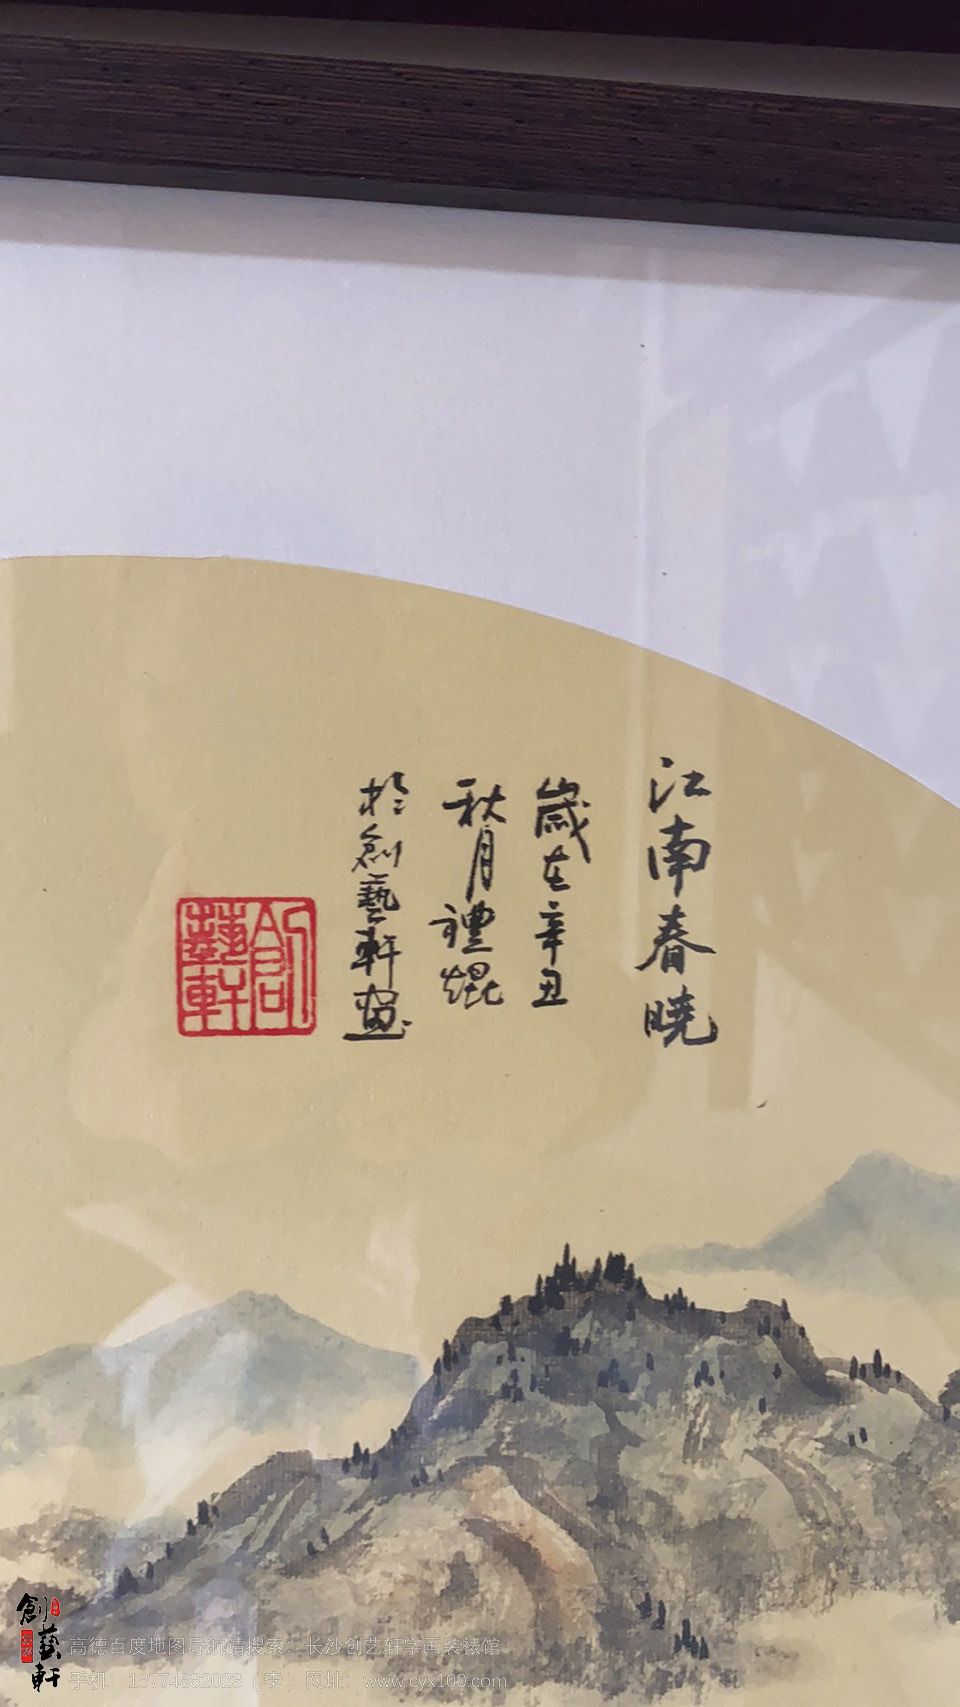 江南春曉
歲在辛丑
秋月禮焜
於創藝軒畫
創藝軒
創藝軒
高德百度地图导航请搜索：长沙创艺轩字画装裱馆
手机：18774882028（李）网址：www.cyx100.com